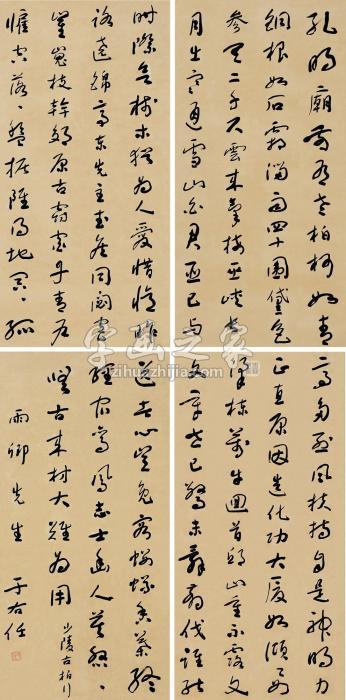 孔明廟前有老柏柯如青
銅根如石霜溜雨四十圍黛色
參天二千尺雲來氣接巫峽長
月出寒通雪山白君臣已與
時際會樹木猶為人愛惜憶昨
路遶錦亭東先主武侯同閟宮
崔嵬枝幹郊原古窈窕丹青戶
牖空落落盤據雖得地冥冥孤
高多烈風扶持自是神明力
正直原因造化功大廈如傾要
梁棟萬牛回首邱山重不露
文章世已驚未辭翦伐誰能
送苦心豈免容螻蟻香葉終
經宿鸞鳳志士幽人莫怨
嗟古來材大難為用 少陵古柏行
雨卿先生 于右任
字画之家
zihuazhijia.com